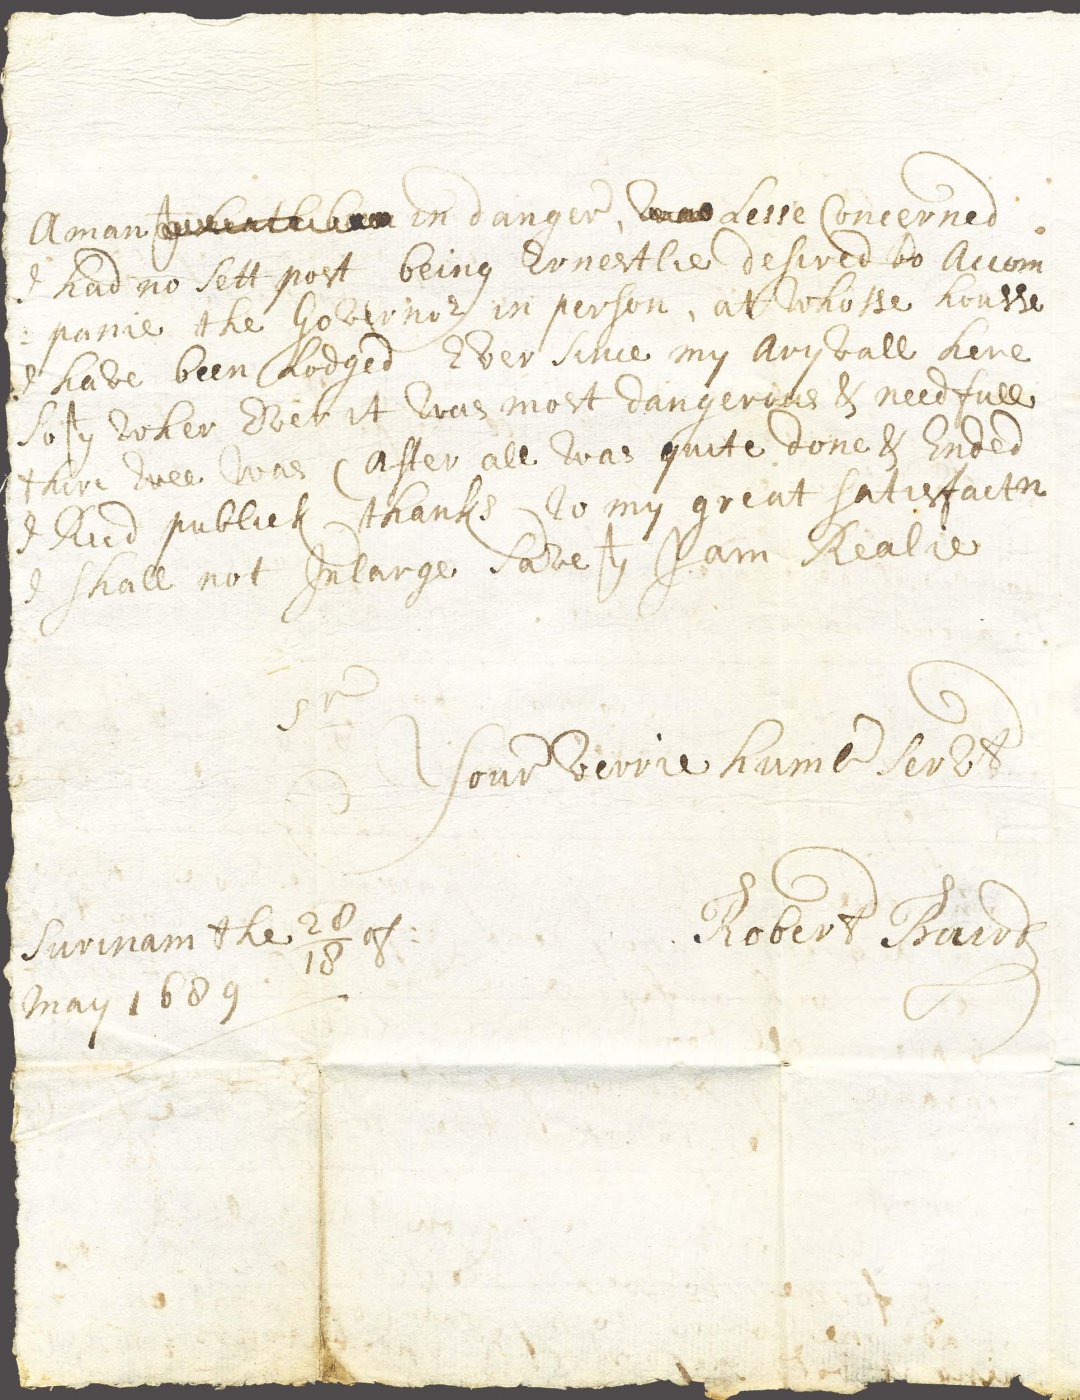 A man in danger, was Lesse Concerned
I had no sett post being Ernestlie desired to Accom
: panie the Governor in person, at whosse housse
I have been Lodged Ever since my Aryvall here
So yt wher Ever it was most dangerous & needfull
thire wee was After all was quite done & Ended
I Red publick thanks to my great satisfactn
I shall not Inlarge Save yt I am Realie
Sr
Your verrie humle Servt
Robert Baird
Surinam the 28/18 of:
May 1689